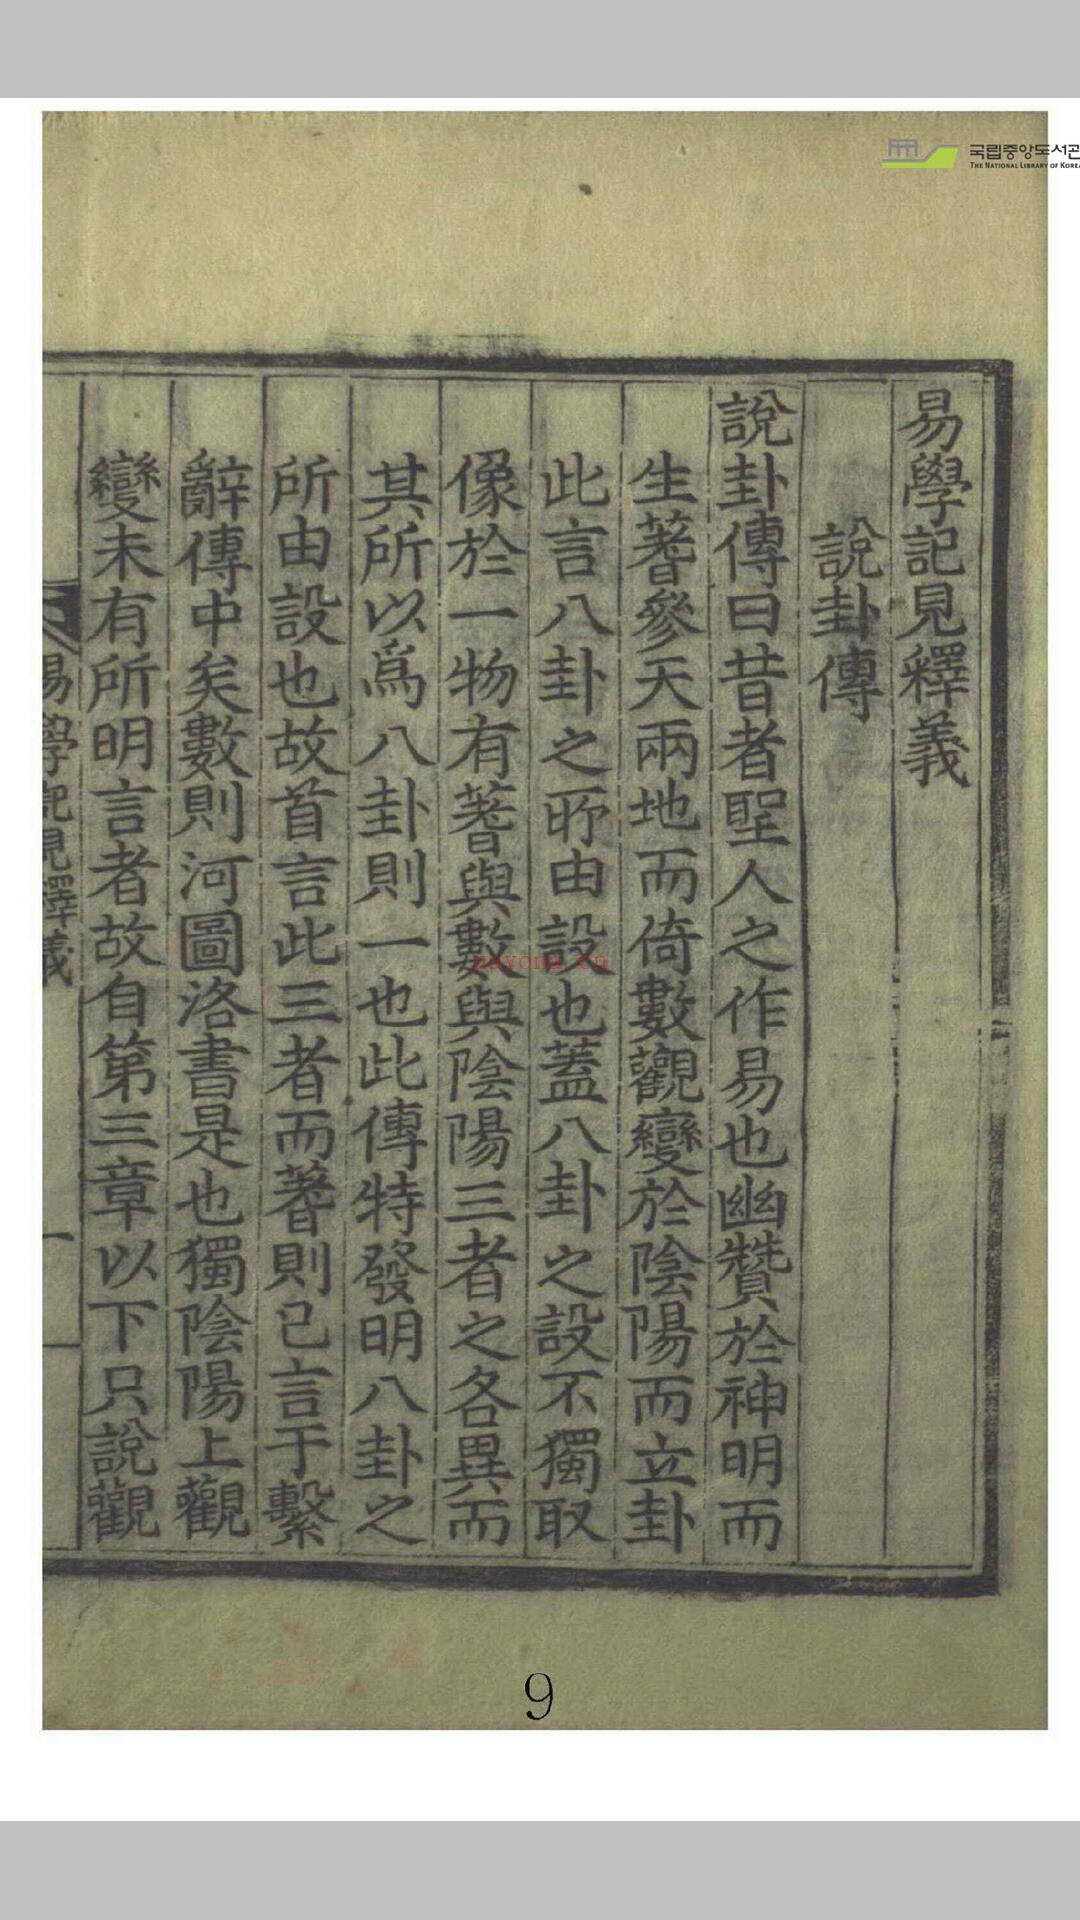 국립중앙도서관
THE NATIONAL LIBRARY OF KOREA
易學記見釋義
說卦傳
說卦傳曰昔者聖人之作易也幽贊於神明而
生蓍參天兩地而倚數觀變於陰陽而立卦
此言八卦之所由設也蓋八卦之設不獨取
像於一物有蓍與數與陰陽三者之各異而
其所以爲八卦則一也此傳特發明八卦之
所由設也故首言此三者而蓍則已言于繫
辭傳中矣數則河圖洛書是也獨陰陽上觀
變未有所明言者故自第三章以下只說觀
易學記見釋義
一
nayona.cn
9